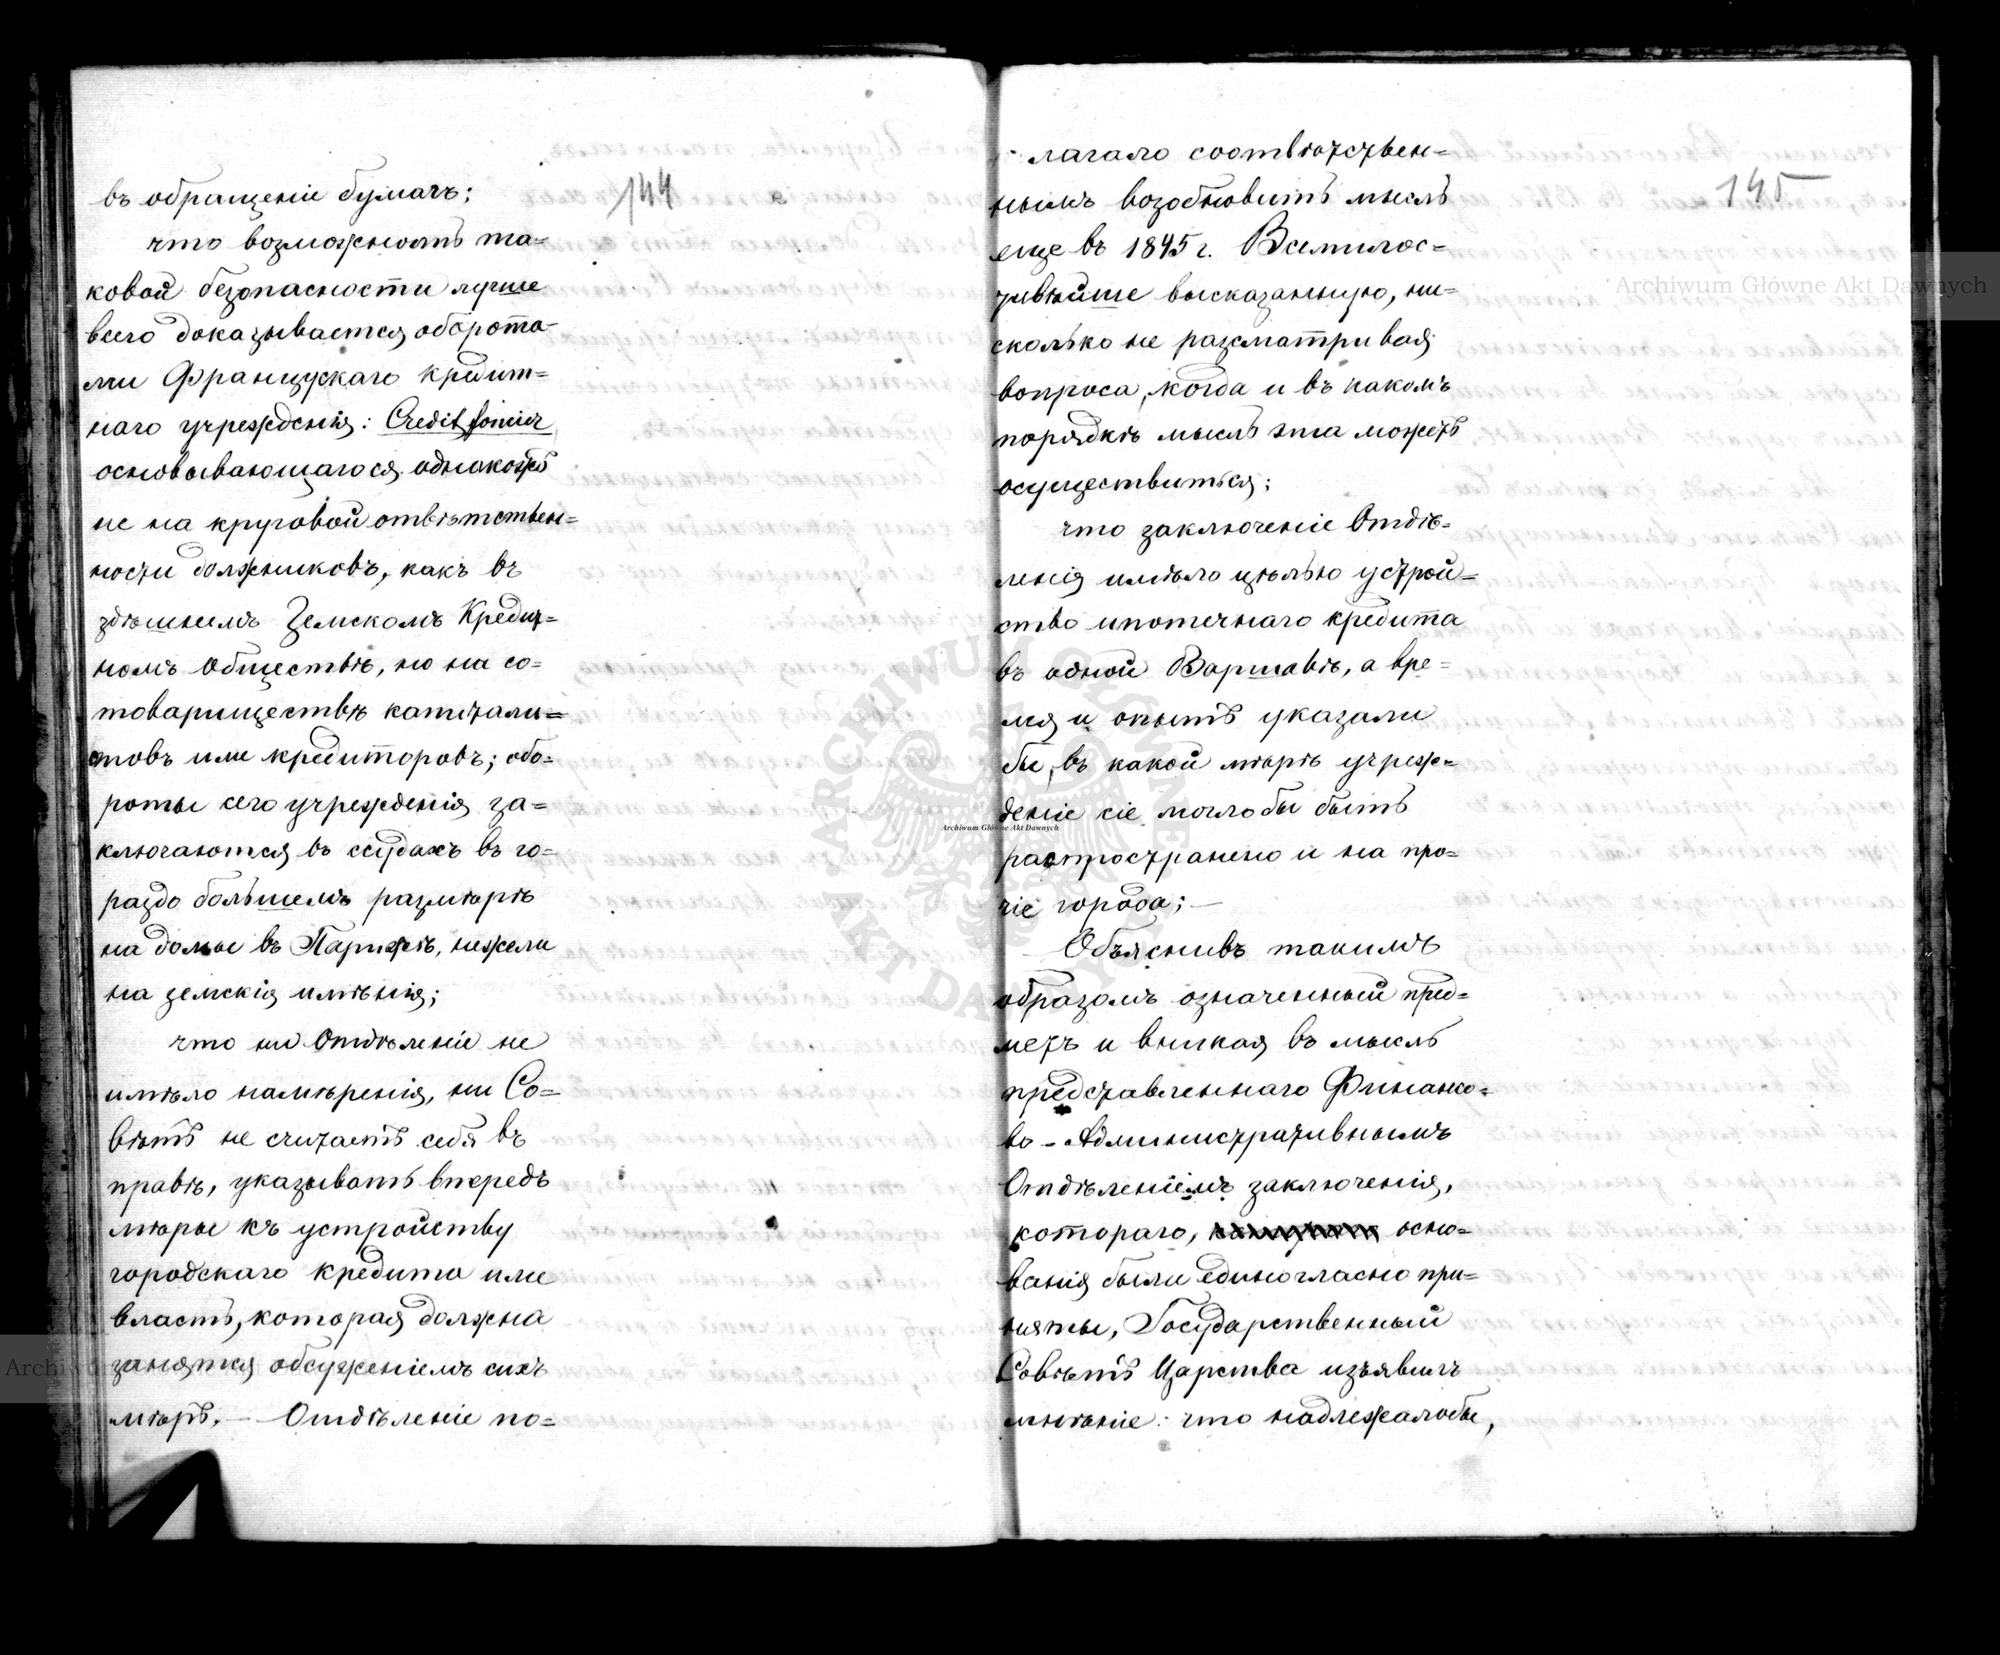 144
въ обращеніе бумагъ;
что возможность та=
ковой безопасности лучше
всего доказывается оборота-
ми Французскаго кредит=
наго учрежденія: Credit foncier
основывающагося однакожъ
не на круговой отвѣтствен=
ности должниковъ, какъ въ
здѣшнемъ Земскомъ Кредит=
номъ Обществѣ, но на со=
товариществѣ капитали=
стовъ или кредиторовъ; обо=
роты сего учрежденія за=
ключаются въ ссудахъ въ го=
раздо большемъ размѣрѣ
на домы въ Парижѣ, нежели
на земскія имѣнія;
что ни Отдѣленіе не
имѣло намѣренія, ни Со=
вѣтъ не считаетъ себя въ
правѣ, указывать впередъ
мѣры къ устройству
городскаго кредита или
власть, которая должна
заняться обсужденіемъ сихъ
мѣръ. — Отдѣленіе по=
145
лагало соотвѣтствен=
нымъ возобновить мысль
еще въ 1845 г. Всемилос=
тивѣйше высказанную, ни=
сколько не разсматривая
вопроса, когда и въ какомъ
порядкѣ мысль эта можетъ
осуществиться;
что заключеніе Отдѣ=
ленія имѣло цѣлью устрой=
ство ипотечнаго кредита
въ одной Варшавѣ, а вре=
мя и опытъ указали
бы, въ какой мѣрѣ учреж=
деніе сіе могло бы быть
распространено и на про=
чіе города; —
Объяснивъ такимъ
образомъ означенный пред=
метъ и вникая въ мысль
представленнаго Финансо=
во-Административнымъ
Отдѣленіемъ заключенія,
котораго, осно=
ванія были единогласно при=
няты, Государственный
Совѣтъ Царства изъявилъ
мнѣніе: что надлежало бы,
Archiwum Główne Akt Dawnych
Archiwum Główne Akt Dawnych
ARCHIWUM GŁÓWNE AKT DAWNYCH